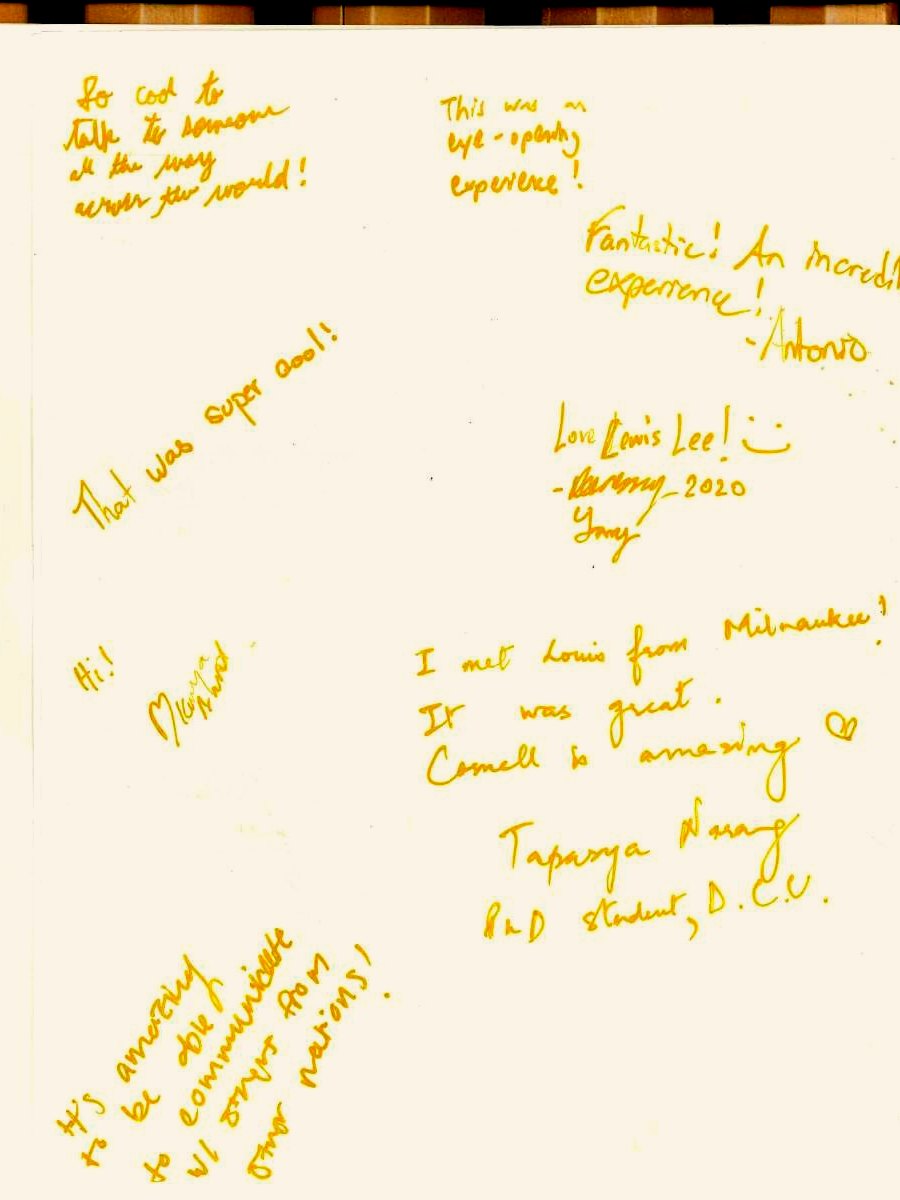 So cool to
talk to someone
all the way
across the world!
This was an
eye-opening
experience!
Fantastic! An incredi
experience!
-Antonio
That was super cool!
Love Lewis Lee! :)
- 2020
Hi!
I met Louis from Milwaukee!
It was great.
Cornell is amazing ♡
Tapasya Narang
PhD student, D.C.U.
It's amazing
to be able
to communicate
w/ others from
other nations!